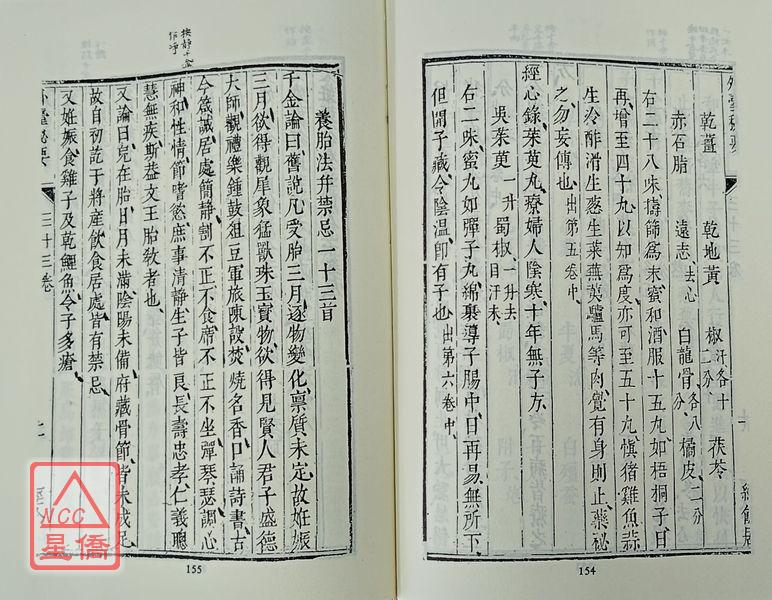 乾薑 乾地黃 椒汗各十二分 茯苓
赤石脂 遠志去心 白龍骨各八分 橘皮二分
右二十八味擣篩爲末蜜和酒服十五丸如梧桐子日
再增至四十九以知爲度亦可至五十九愼猪雞魚蒜
生冷酢滑生葱生菜蕪荑驢馬等肉覺有身則止藥祕
之勿妄傳也出第五卷中
經心錄茱萸丸療婦人陰寒十年無子方
吳茱萸一升 蜀椒一升去目汗末
右二味蜜丸如彈子丸綿裹導子腸中日再易無所下
但開子藏令陰溫即有子也出第六卷中
154
養胎法并禁忌一十三首
千金論曰舊說凡受胎三月逐物變化禀質未定故妊娠
三月欲得觀犀象猛獸珠玉寶物欲得見賢人君子盛德
大師觀禮樂鍾鼓俎豆軍旅陳設焚燒名香口誦詩書古
今箴誡居處簡靜割不正不食席不正不坐彈琴瑟調心
神和性情節嗜慾庶事清靜生子皆良長壽忠孝仁義聰
慧無疾斯葢文王胎敎者也
又論曰兒在胎日月未滿陰陽未備府藏骨節皆未成足
故自初訖于將產飲食居處皆有禁忌
又妊娠食雞子及乾鯉魚令子多瘡
外臺祕要 三十三卷
155
NCC
星僑